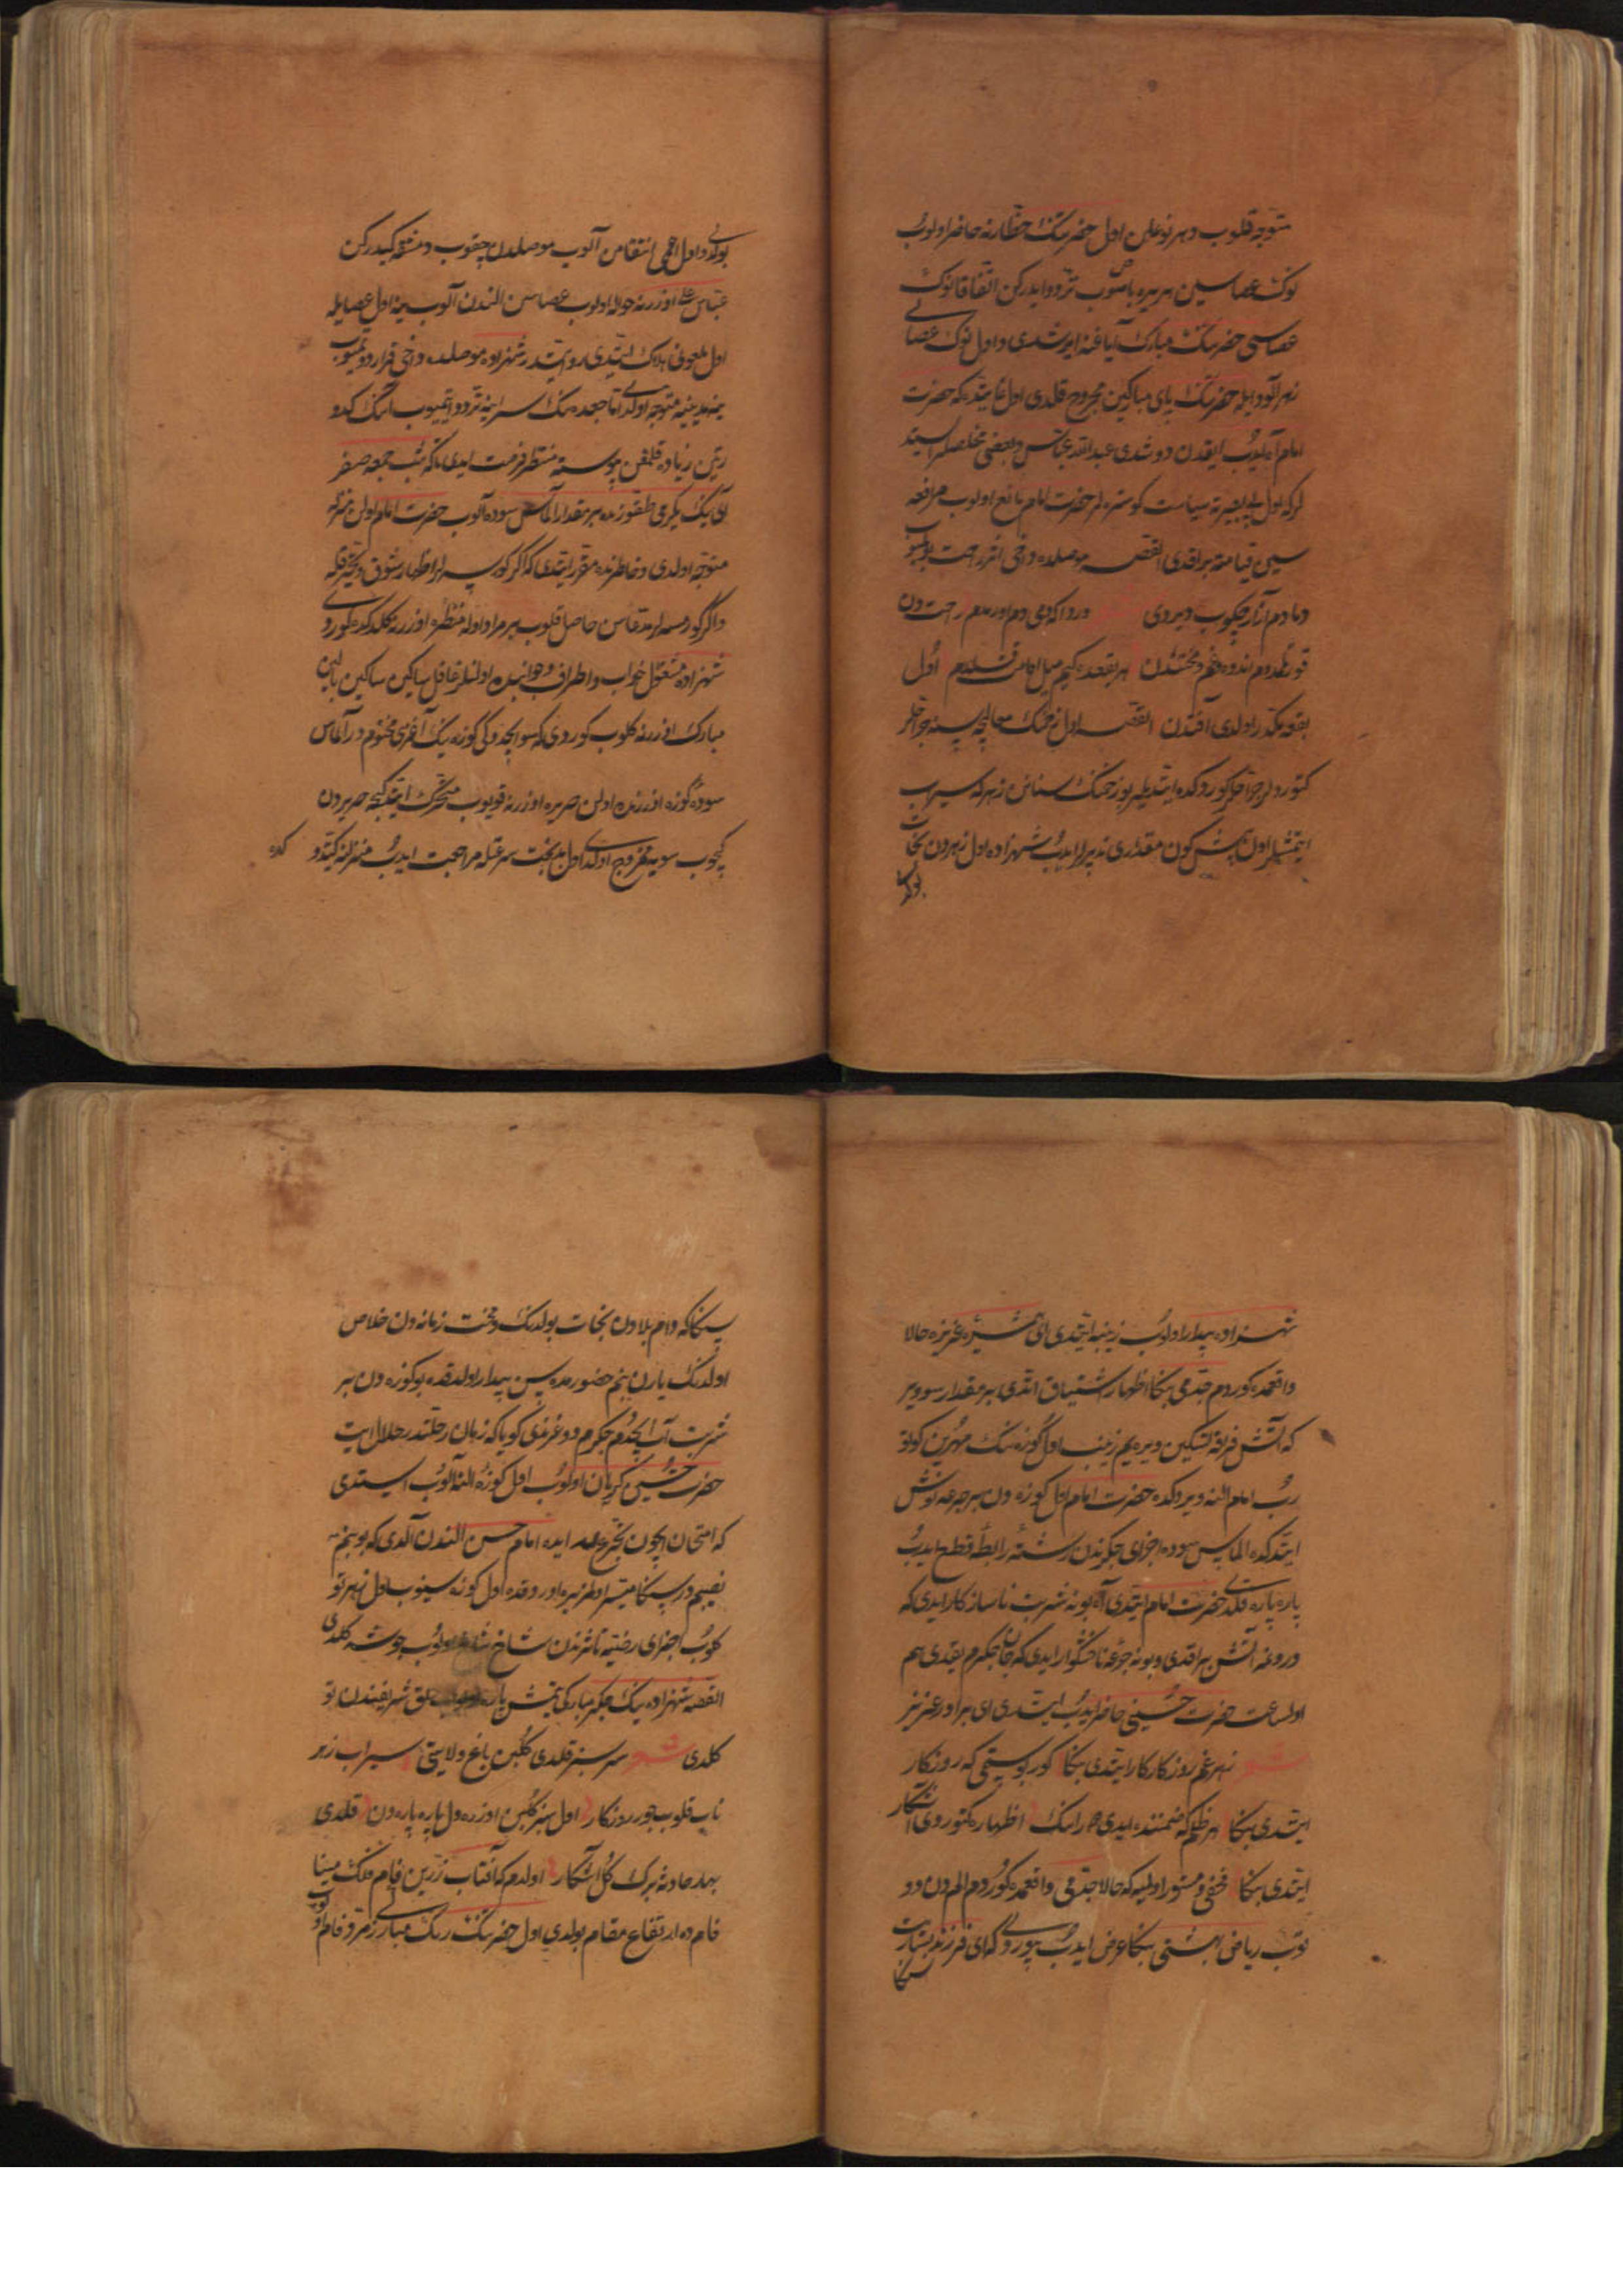 متوجه قلوب و هر نوعلن اول حضرتنك حظارنه حاضر اولوب
نوك عصاسین هر یره باصوب تردد ایدرکن اتفاقا نوك
عصاسی حضرتنك مبارك آیاغنه ایرشدی و اول نوك عصای
زهرآلود ایله حضرتنك پای مبارکین مجروح قلدی اول غایتده که حضرت
امام آه ایدوب ایقدن دوشدی عبدالله عباس و بعضی مخلصلر استد
لرکه اول بی بصیرته سیاست کوستره لر حضرت امام مانع اولوب مرافعه
سین قیامته براقدی القصه موصلده دخی اثر راحت بولمیوب
دمادم آزار چکوب دیردی درداکه دمی دم اورمدم راحتدن
قورتلمدم اندوه و غم و محنتدن هر بقعده کیم میل اقامت قلدم اول
بقعه مکدر اولدی آفتدن القصه اول زخمك معالجه سینه جراحلر
کتوردیلر جراحلر کوردکده ایتدیلر بو زخمنك سنانن زهرله سیراب
ایتمشلر اون بش کون مقداری تدبیرلر ایدوب شهزاده اول زهردن نجات
بولدی
بولدی و اول اعمی انتقامن آلوب موصلدن چقوب دمشقه کیدرکن
عباس علی اوزرینه حواله اولوب عصاسن الندن آلوب ینه اول عصایله
اول ملعونی هلاك ایتدی روایتدر شهزاده موصلده دخی قرار دوتمیوب
ینه مدینیه متوجه اولدی اما جعده نك سراینه تردد ایتمیوب انك کدو
رتین زیاده قلمغن پیوسته منتظر فرصت ایدی تا که شب جمعه صفر
آینك یکرمی طقوزنده بر مقدار الماس سوده آلوب حضرت امام اولن منزله
متوجه اولدی و خاطرنده مقرر ایتدی که اکر کورسه لر اظهار شوق و تحیر قله
و اکر کورمسه لر مدعاسن حاصل قلوب بیمراد اوله منظره اوزرینه کلدکده کوردی
شهزاده مشغول خواب و اطراف و جوانبنده اولنلر غافل ساکن ساکن بالین
مبارك اوزرینه کلوب کوردی که سو ایچدوکی کوزه نیك آغزی مختومدر الماس
سوده کوزه اوزرنده اولن حریره اوزرینه قویوب متحرك ایتدکچه حریردن
کچوب سویه ممزوج اولدی اول بدبخت سرعتله مراجعت ایدوب منزلنه کیتدی
شهزاده بیدار اولوب زینبه ایتدی ای همشیره عزیزه حالا
واقعه ده کوردم جدمی بنکا اظهار اشتیاق ایتدی بر مقدار سو ویر
که آتش فرقه تسکین ویره یم زینب اول کوزه نك مهرین کوتو
رب امام النه ویردکده حضرت امام اول کوزه دن بر جرعه نوش
ایتدکده الماس سوده اجزای جکرندن رشته رابطه قطع ایدوب
پاره پاره قلدی حضرت امام ایتدی آه بو نه شربت ناسازکار ایدی که
درونمه آتش براقدی و بو نه جرعه ناخوشکوار ایدی که جان و جکرم یقدی هم
اول ساعت حضرت حسینی حاضر ایدوب ایتدی ای برادر عزیز
شعر زهر غم روزکار کار ایتدی بنکا کور کوستیمی که روزکار
ایتدی بنکا هر ظلم که ضمننده ایدی چرانك اظهاره کتوردی آشکار
ایتدی بنکا مخفی و مستور اولمیه که حالا جدمی واقعه ده کوردم الم دن دو
توب ریاض بهشتی بنکا عرض ایدوب بیوردی که ای فرزند بشارت
سنکا
سنکا که دام بلادن نجات بولدنك و محنت زماندن خلاص
اولدنك یارن بنم حضورمده سن بیدار اولدقده بو کوزه دن بر
شربت آب ایچدم جکرم دوغرندی کویا که زمان رحلتدر حلال ایت
حضرت حسین کریان اولوب اول کوزه النه آلوب استدی
که امتحان ایچون تجرع ایده امام حسن الندن آلدی که بو بنم
نصیبمدر سنکا میسر اولمز یره اوردقده اول کوزه سینوب اول زهر تو
کلوب اجزای زمینه تأثیرندن شاخ شاخ اولوب جوشه کلدی
القصه شهزاده نیك جکر مبارکی یتمش پاره اولوب حلق شریفندن تو
کلدی شعر سرسبز قلدی کلبن باغ ولایتی سیراب زهر
ناب قلوب جور روزکار اول سبز کلبن اوزره ول پاره پاره دن قلدی
بهار حادثه برك کل آشکار اول دم که آفتاب زرین فام فلك مینا
فام ده ارتفاع مقام بولدی اول حضرتنك رنك مبارکی زمرد فام اولوب